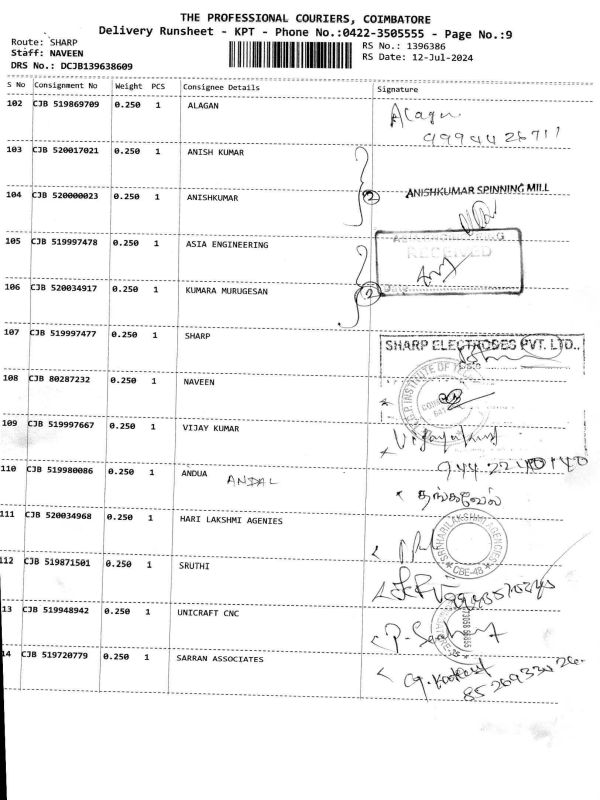 THE PROFESSIONAL COURIERS, COIMBATORE
Delivery Runsheet - KPT - Phone No.:0422-3505555 - Page No.:9
Route: SHARP
Staff: NAVEEN
DRS No.: DCJB139638609
RS No.: 1396386
RS Date: 12-Jul-2024
S No Consignment No Weight PCS Consignee Details Signature
102 CJB 519869709 0.250 1 ALAGAN Alagu
103 CJB 520017021 0.250 1 ANISH KUMAR
104 CJB 520000023 0.250 1 ANISHKUMAR 2 ANISHKUMAR SPINNING MILL
105 CJB 519997478 0.250 1 ASIA ENGINEERING
RECEIVED
106 CJB 520034917 0.250 1 KUMARA MURUGESAN 2 Date
107 CJB 519997477 0.250 1 SHARP SHARP ELECTRODES PVT. LTD.,
108 CJB 80287232 0.250 1 NAVEEN
109 CJB 519997667 0.250 1 VIJAY KUMAR Vijayakumar
110 CJB 519980086 0.250 1 ANDUA ANDAL தங்கவேல்
111 CJB 520034968 0.250 1 HARI LAKSHMI AGENIES
SRI HARILAKSHMI AGENCIES
CBE-48
112 CJB 519871501 0.250 1 SRUTHI
13 CJB 519948942 0.250 1 UNICRAFT CNC
14 CJB 519720779 0.250 1 SARRAN ASSOCIATES